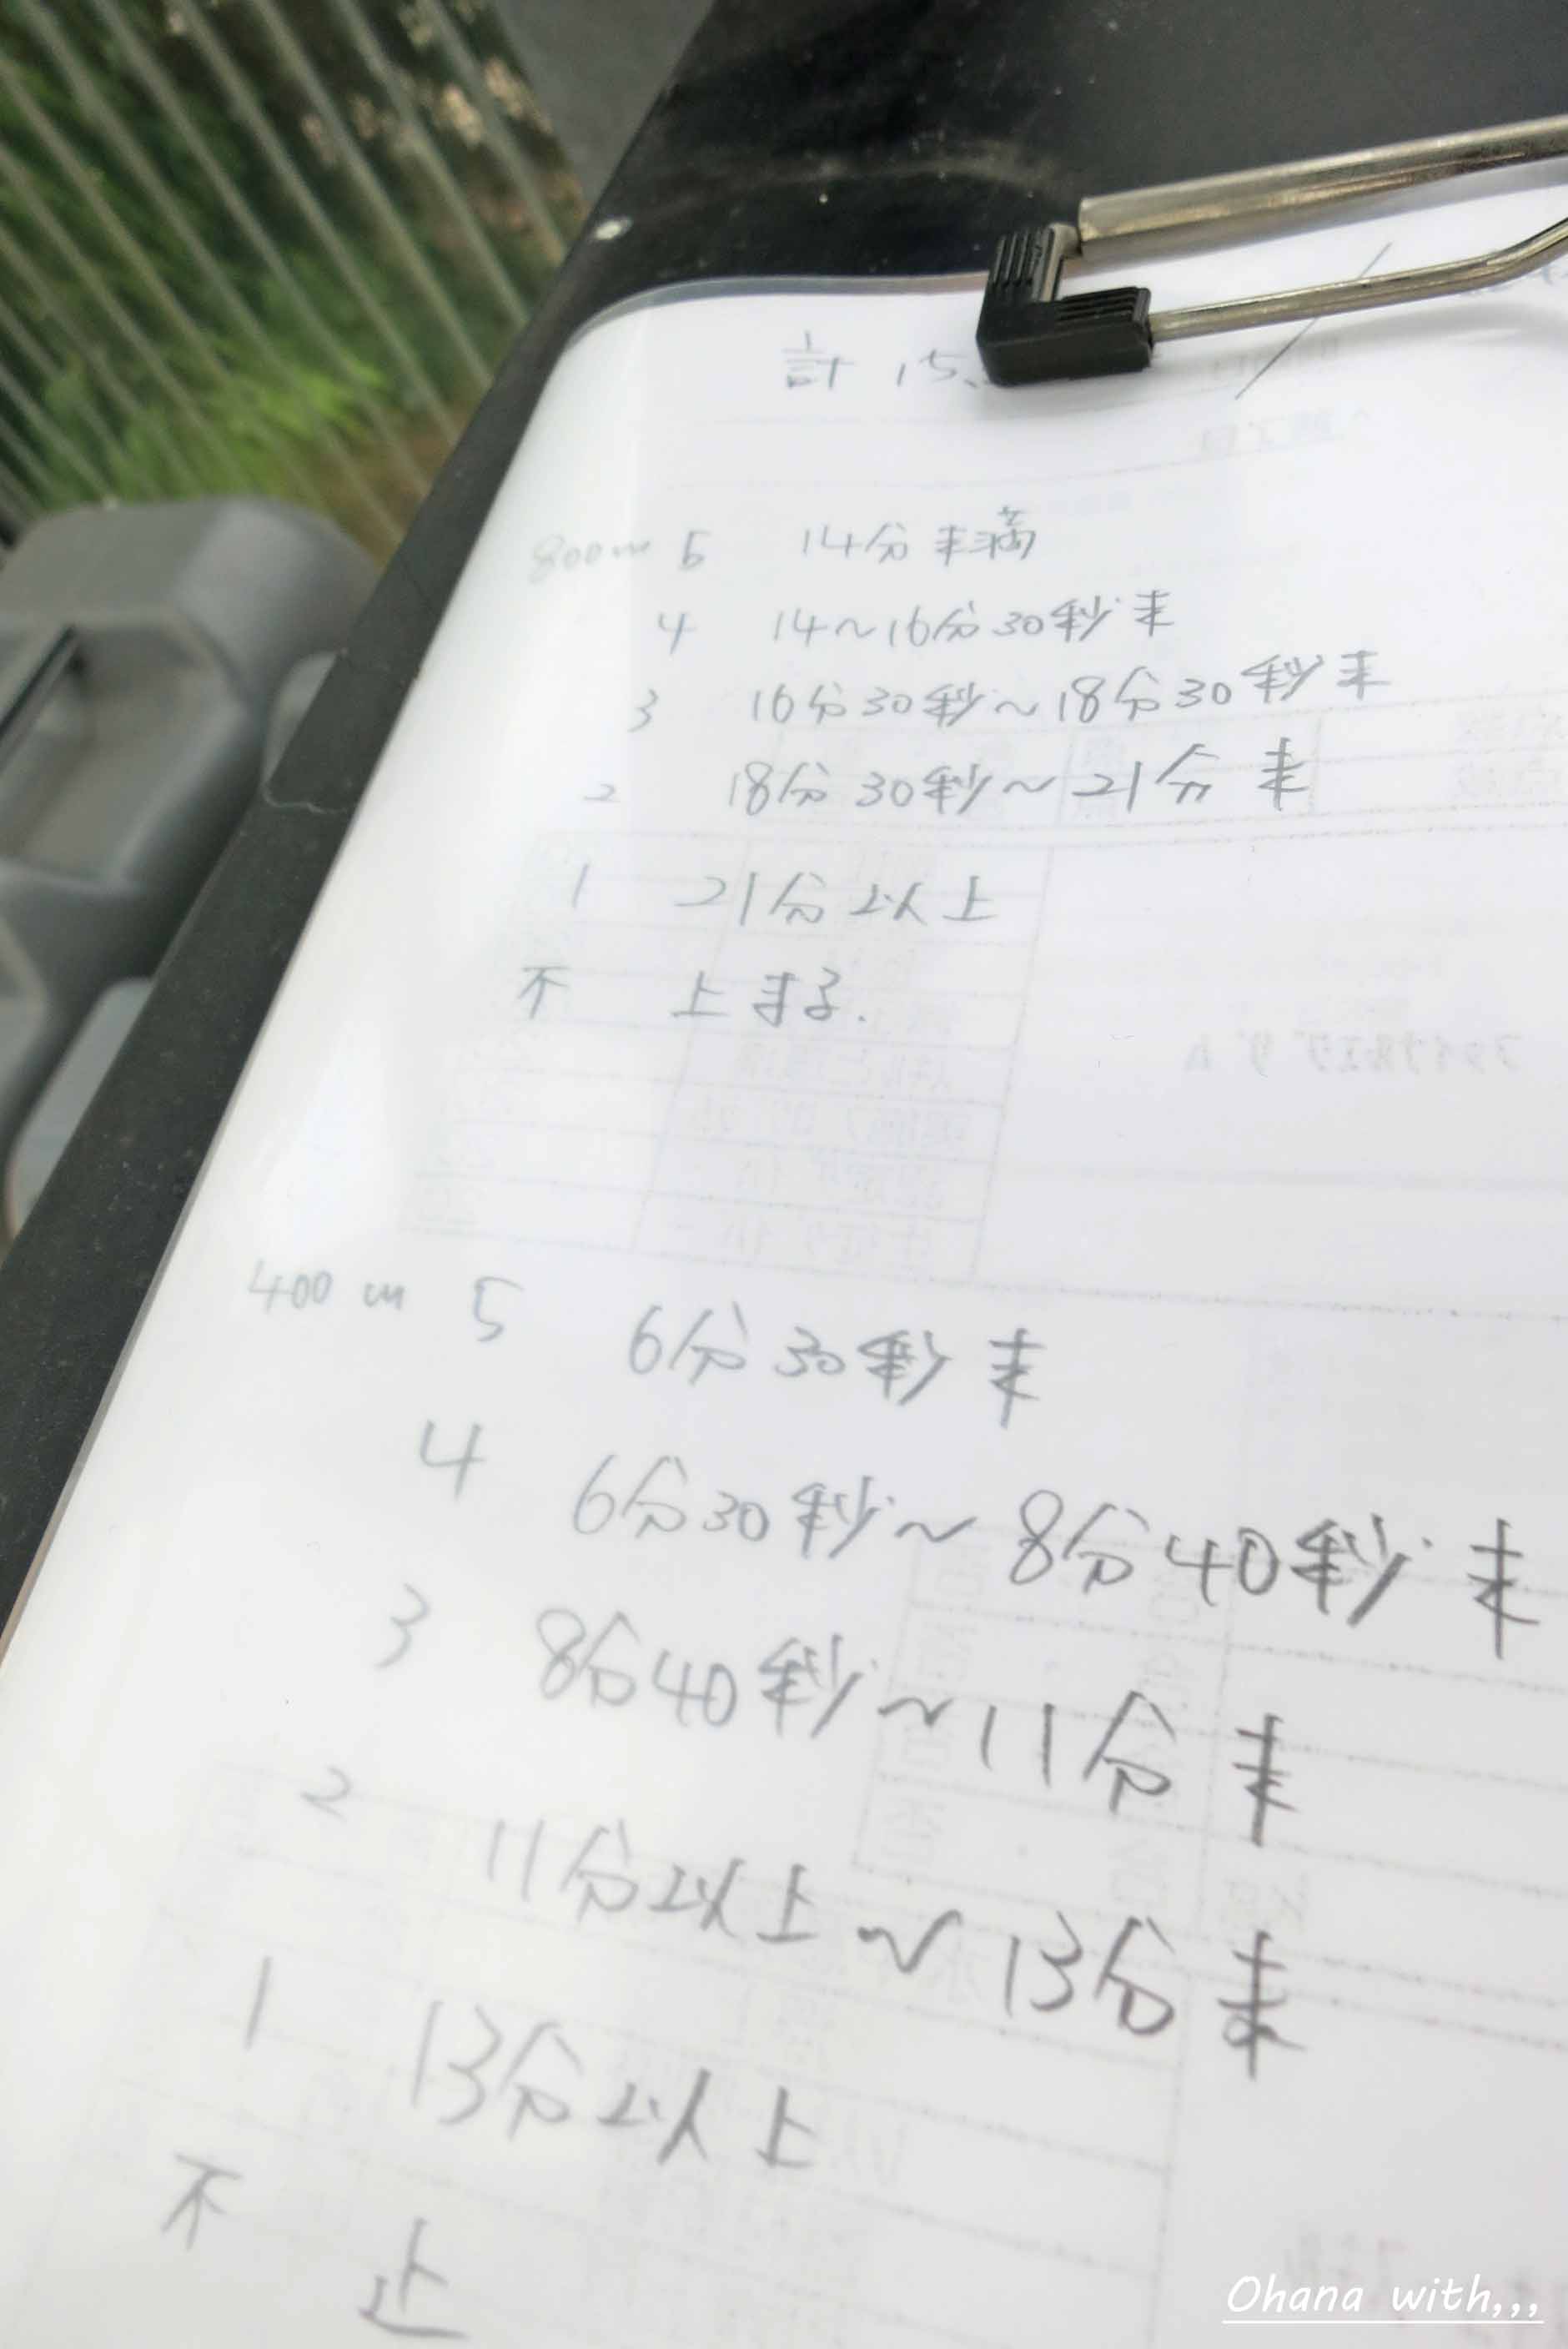 計 15.
800m 5 14分未満
4 14〜16分30秒未
3 16分30秒〜18分30秒未
2 18分30秒〜21分未
1 21分以上
不 止まる.
400m 5 6分30秒未
4 6分30秒〜8分40秒未
3 8分40秒〜11分未
2 11分以上〜13分未
1 13分以上
不 止
Ohana with,,,